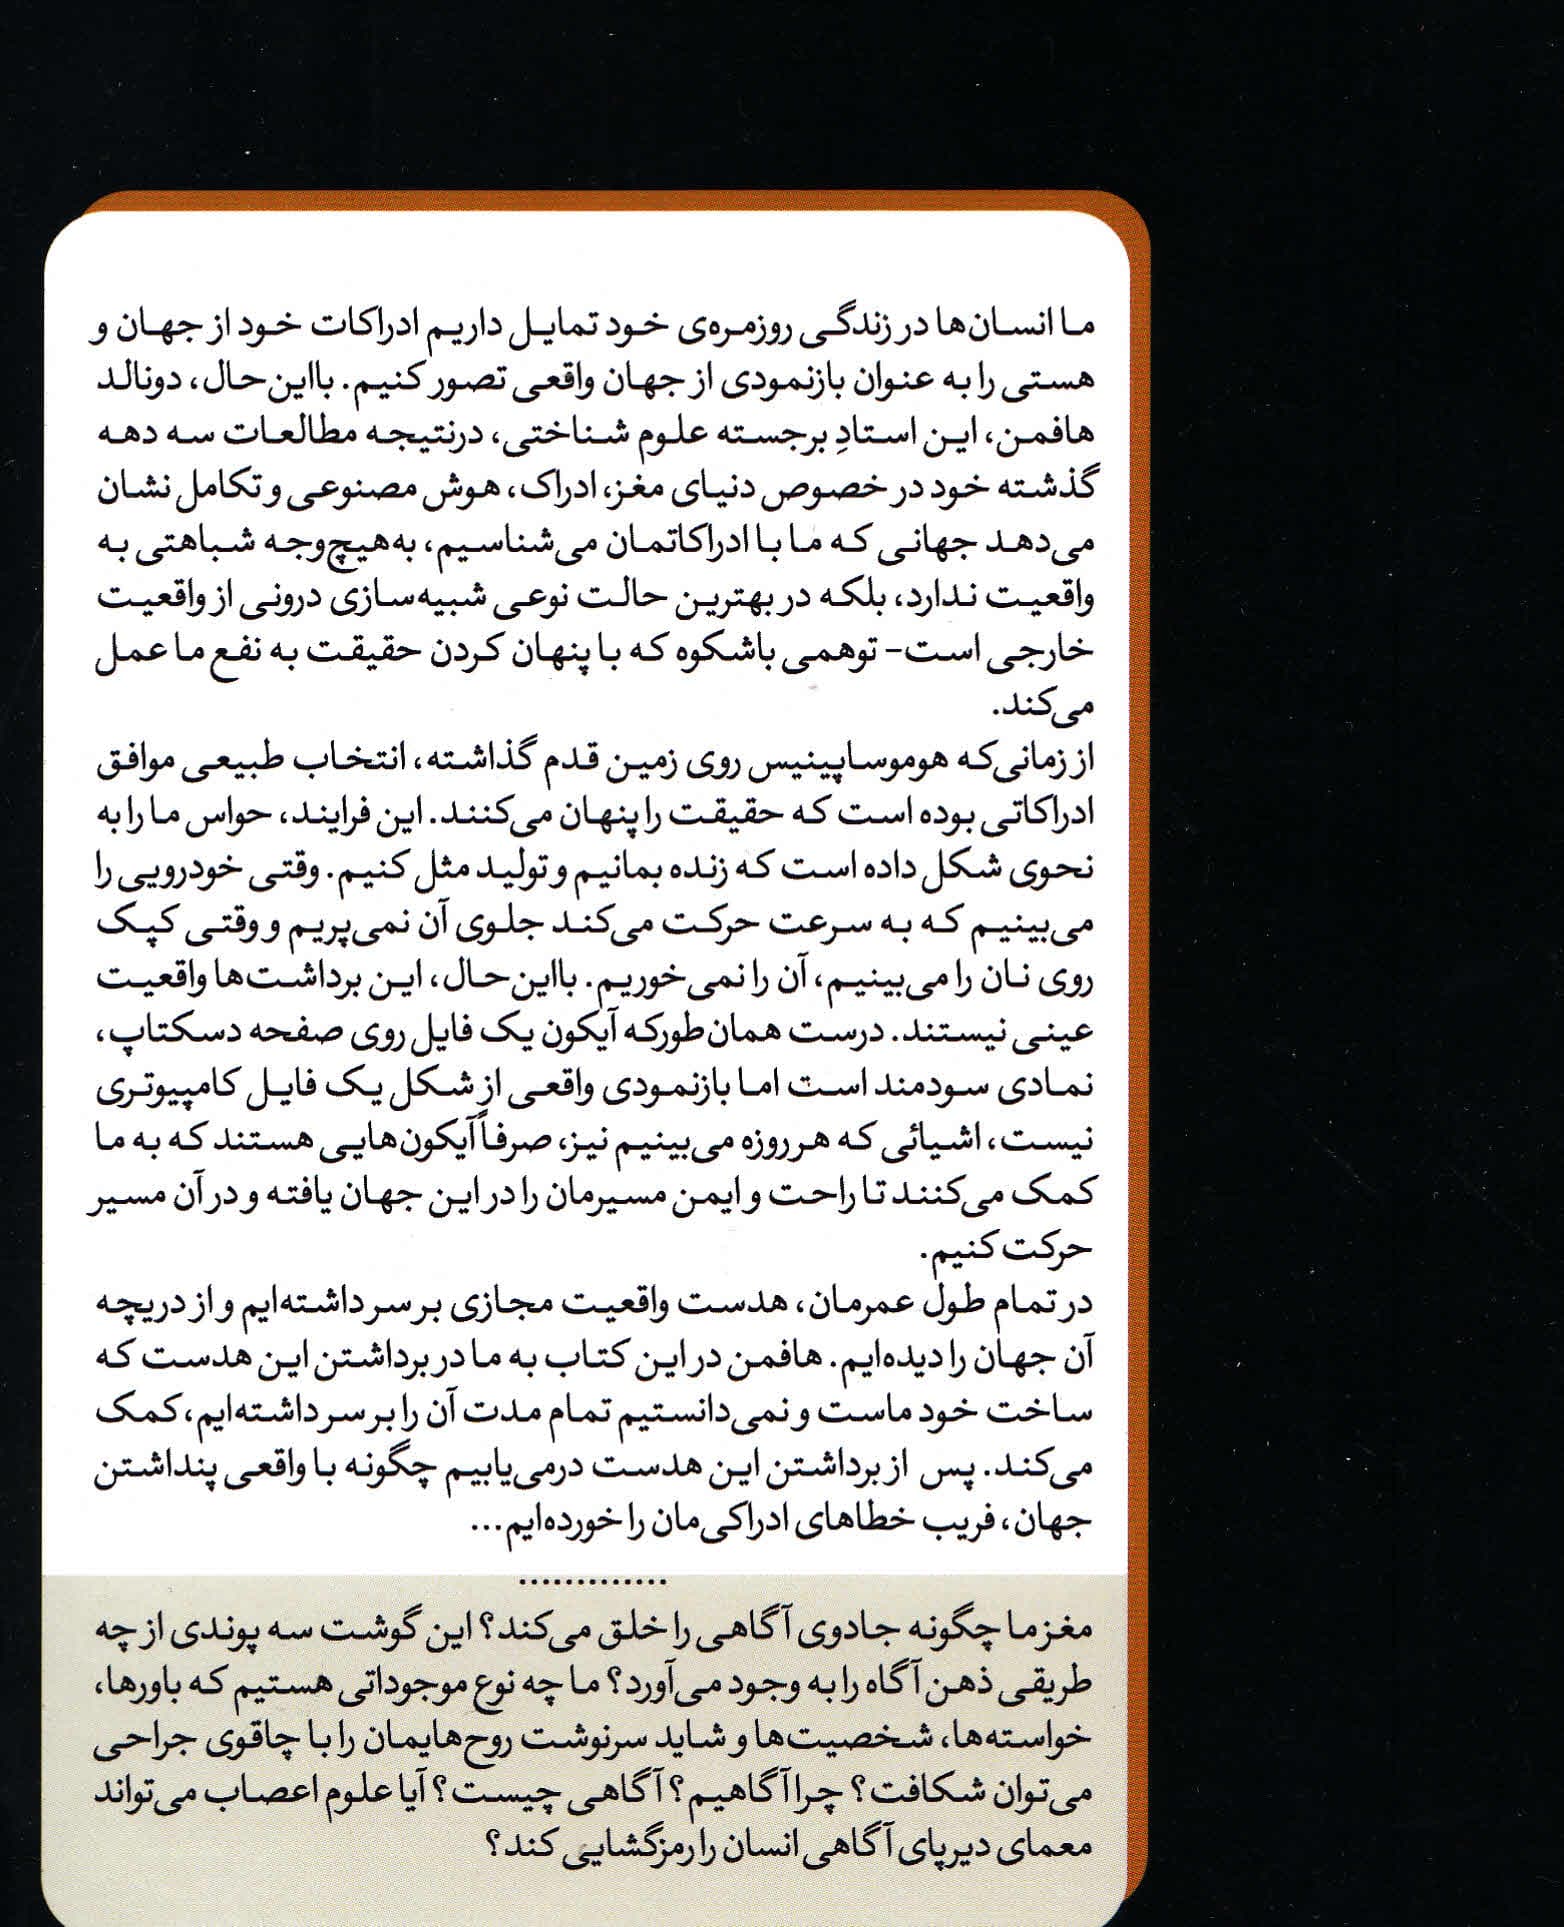 ما انسان‌ها در زندگی روزمره‌ی خود تمایل داریم ادراکات خود از جهان و
هستی را به عنوان بازنمودی از جهان واقعی تصور کنیم. بااین‌حال، دونالد
هافمن، این استادِ برجسته علوم شناختی، درنتیجه مطالعات سه دهه
گذشته خود در خصوص دنیای مغز، ادراک، هوش مصنوعی و تکامل نشان
می‌دهد جهانی که ما با ادراکاتمان می‌شناسیم، به‌هیچ‌وجه شباهتی به
واقعیت ندارد، بلکه در بهترین حالت نوعی شبیه‌سازی درونی از واقعیت
خارجی است- توهمی باشکوه که با پنهان کردن حقیقت به نفع ما عمل
می‌کند.
از زمانی‌که هوموساپینیس روی زمین قدم گذاشته، انتخاب طبیعی موافق
ادراکاتی بوده است که حقیقت را پنهان می‌کنند. این فرایند، حواس ما را به
نحوی شکل داده است که زنده بمانیم و تولید مثل کنیم. وقتی خودرویی را
می‌بینیم که به سرعت حرکت می‌کند جلوی آن نمی‌پریم و وقتی کپک
روی نان را می‌بینیم، آن را نمی‌خوریم. بااین‌حال، این برداشت‌ها واقعیت
عینی نیستند. درست همان‌طورکه آیکون یک فایل روی صفحه دسکتاپ،
نمادی سودمند است اما بازنمودی واقعی از شکل یک فایل کامپیوتری
نیست، اشیائی که هر روزه می‌بینیم نیز، صرفاً آیکون‌هایی هستند که به ما
کمک می‌کنند تا راحت و ایمن مسیرمان را در این جهان یافته و در آن مسیر
حرکت کنیم.
در تمام طول عمرمان، هدست واقعیت مجازی بر سر داشته‌ایم و از دریچه
آن جهان را دیده‌ایم. هافمن در این کتاب به ما در برداشتن این هدست که
ساخت خود ماست و نمی‌دانستیم تمام مدت آن را بر سر داشته‌ایم، کمک
می‌کند. پس از برداشتن این هدست درمی‌یابیم چگونه با واقعی پنداشتن
جهان، فریب خطاهای ادراکی‌مان را خورده‌ایم...
.............
مغز ما چگونه جادوی آگاهی را خلق می‌کند؟ این گوشت سه پوندی از چه
طریقی ذهن آگاه را به وجود می‌آورد؟ ما چه نوع موجوداتی هستیم که باورها،
خواسته‌ها، شخصیت‌ها و شاید سرنوشت روح‌هایمان را با چاقوی جراحی
می‌توان شکافت؟ چرا آگاهیم؟ آگاهی چیست؟ آیا علوم اعصاب می‌تواند
معمای دیرپای آگاهی انسان را رمزگشایی کند؟